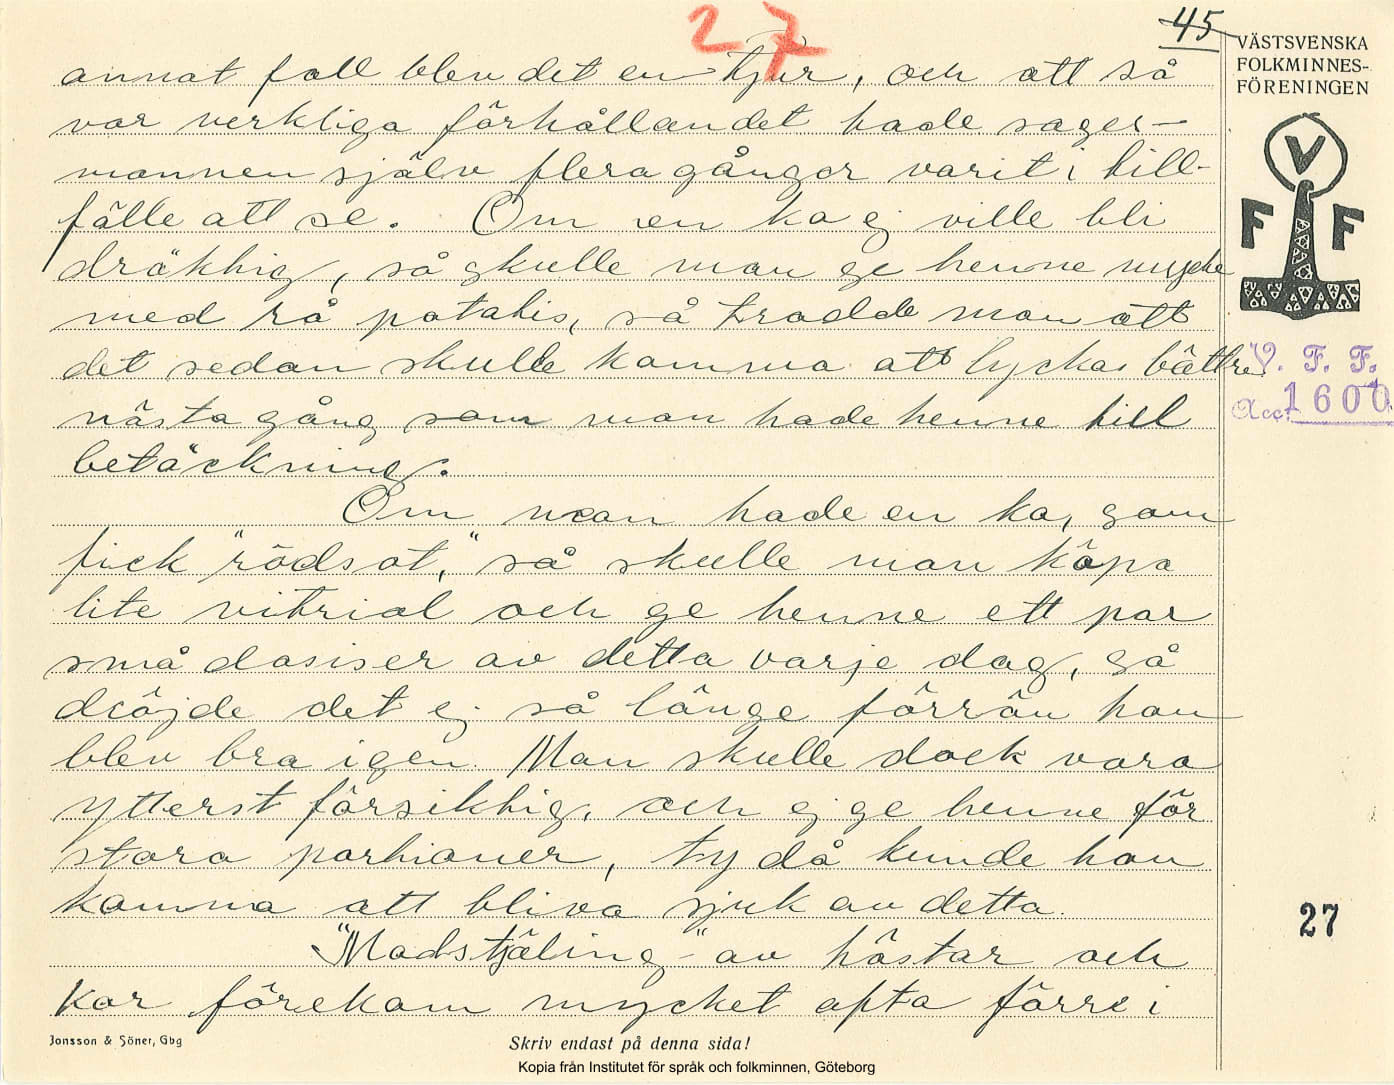 27
45
VÄSTSVENSKA
FOLKMINNES-
FÖRENINGEN
V
F F
annat fall blev det en tjur, och att så
var verkliga förhållandet hade sages-
mannen själv flera gånger varit i till-
fälle att se. Om en ko ej ville bli
dräktig, så skulle man ge henne mycke
med rå potatis, så trodde man att
det sedan skulle komma att lyckas bättre
nästa gång som man hade henne till
betäckning.
Om man hade en ko, som
fick "rödsot," så skulle man köpa
lite vitriol och ge henne ett par
små dosiser av detta varje dag, så
dröjde det ej så länge förrän hon
blev bra igen. Man skulle dock vara
ytterst försiktig, och ej ge henne för
stora portioner, ty då kunde hon
komma att bliva sjuk av detta.
"Modstjäling" av hästar och
kor förekom mycket ofta förr i
V. F. F.
Acc. 1600
27
Jonsson & Söner, Gbg
Skriv endast på denna sida!
Kopia från Institutet för språk och folkminnen, Göteborg